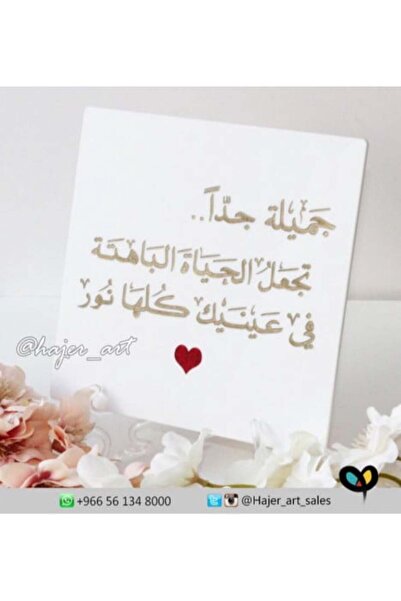 جَميْلة جدّاً..
تجعَلُ الحَيَاةَ البَاهتَة
في عَينَيك كُلهَا نُور
@hajer_art
+966 56 134 8000
@Hajer_art_sales